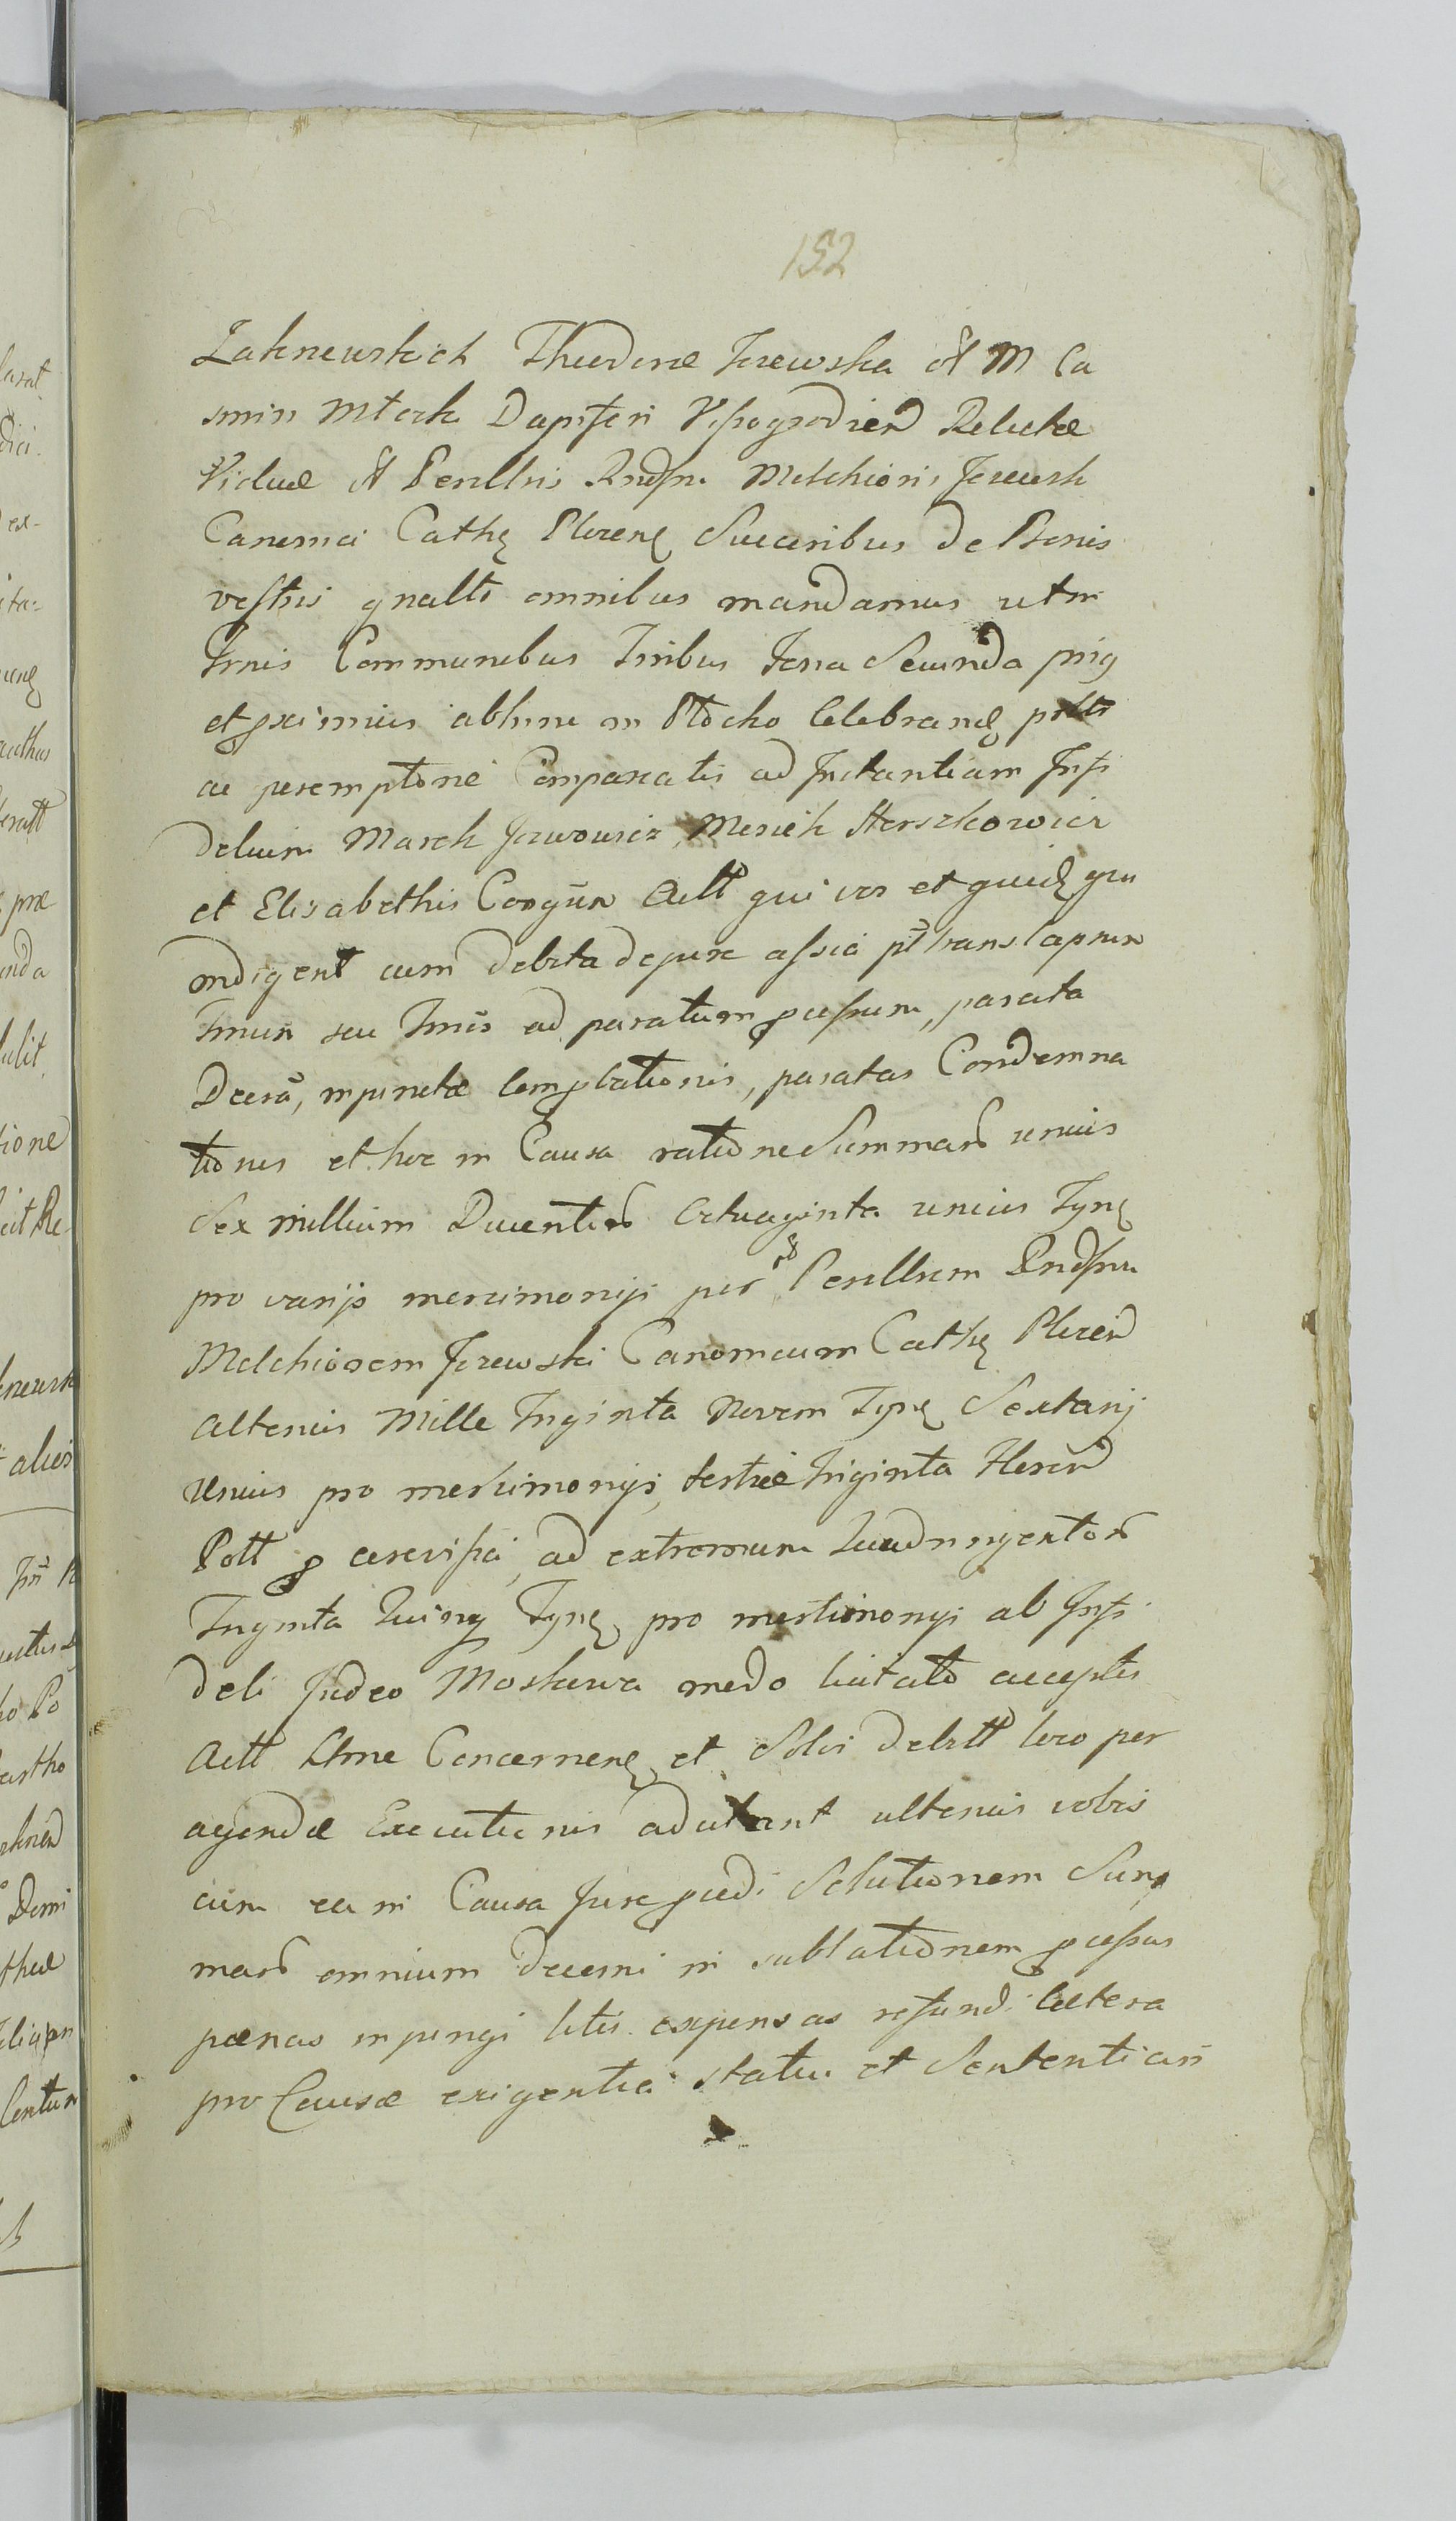 152
Zakrzewskich Theodorae Jezewska et M Ca
simiri Mlock Dapiferi Wyszogrodien Relictae
Viduae et Perillris Rndssmi Melchioris Jezewsk
Canonici Cathe Plocene Succoribus de Bonis
vestris gnaltr omnibus mandamus ut in
Trnis Communibus Tribus Feria Secunda prig
et pximius abhinc in Plocko Celebrane psltr
ac peremptorie Compareatis ad Instantiam Infi
delium Marek Jerzowicz, Mesiek Herszkowicz
et Elisabethis Conjgum Actt qui vos et quide
indigent cum debita de jure assia pt translapsum
Trnum seu Trnis ad paratum pcessum, parata
Decra, inpunctae Contplationis, paratas Condemna
tiones et hoc in Causa ratione Summar unius
Sex millium Ducentor Octuaginta unius Tyne
pro varijs mercimonijs per Perillrem Rndssm
Melchiorem Jezewski Canonicum Cathe Plocen
alterius Mille Triginta Novem Tyne Sextarij
Unius pro mercimonijs, tertiae Triginta Floren
Poll p cerevisia, ad extremum Quadringentor
Triginta Quinq Tyne pro mercimonijs ab Infi
deli Judeo Moskwa modo licitato acceptis
Actt Ltme Concernene et Solvi debitt loco per
agendae Executionis adcitant ulterius vobis
cum ea in Causa Jure pcedi Solutionem Sum
mar omnium decerni in sublationem pcessus
paenas inpingi litis expensas refundi Caetera
pro Causae exigentia statui et Sententiari